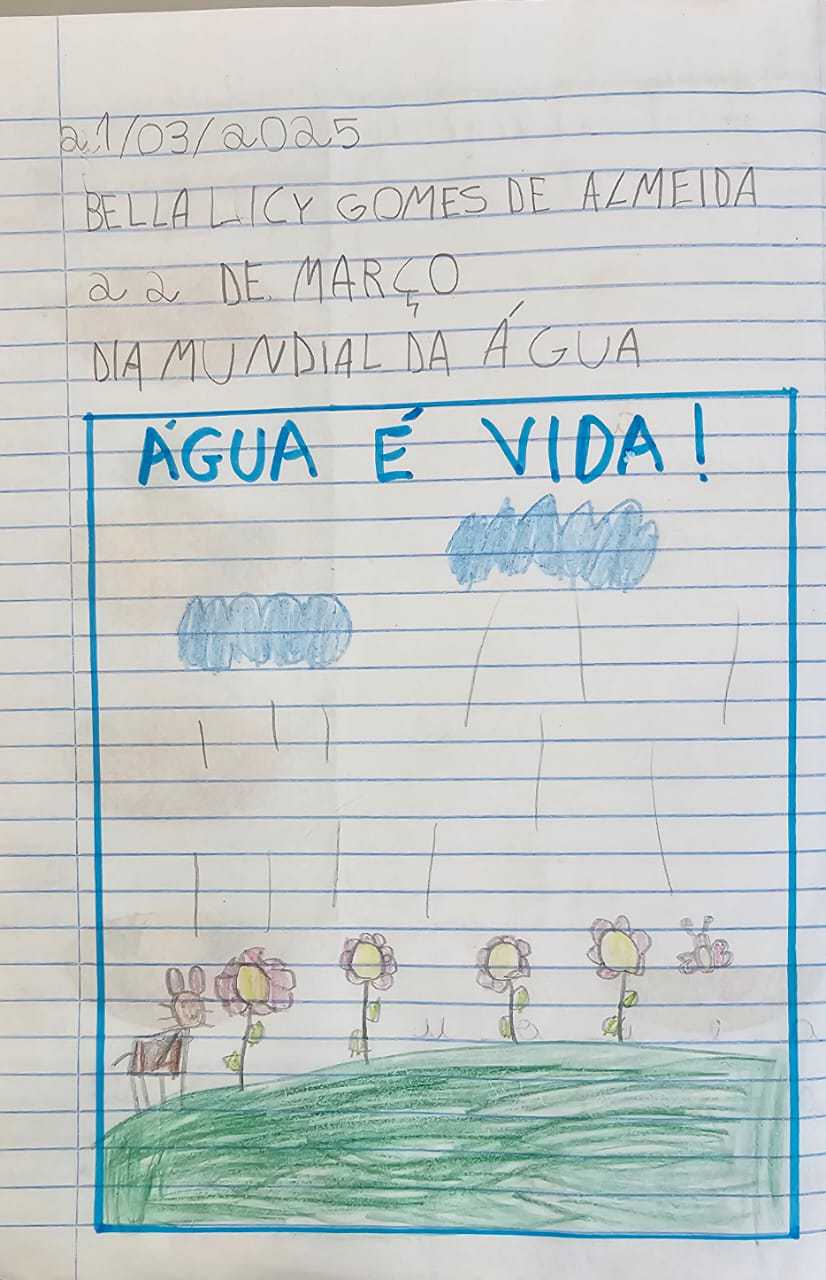 21/03/2025
BELLA LICY GOMES DE ALMEIDA
22 DE MARÇO
DIA MUNDIAL DA ÁGUA
ÁGUA É VIDA!